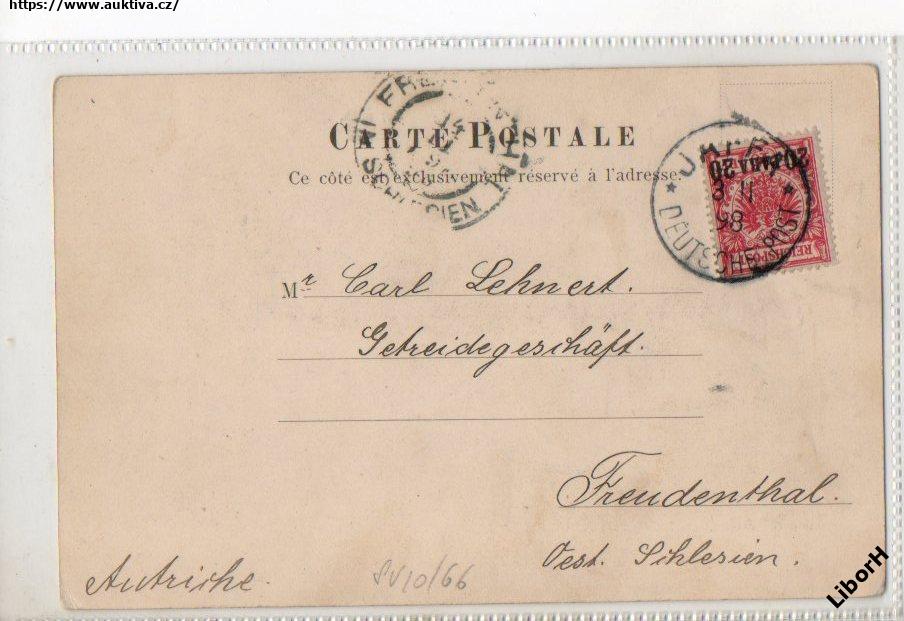 https://www.auktiva.cz/
CARTE POSTALE
Ce côté est exclusivement réservé à l'adresse.
20 PARA 20
REICHSPOST
3 11
98
DEUTSCHE POST
SCHLESIEN
Mr Carl Lehnert.
Getreidegeschäft.
Freudenthal.
Oest. Schlesien.
Autriche.
LiborH